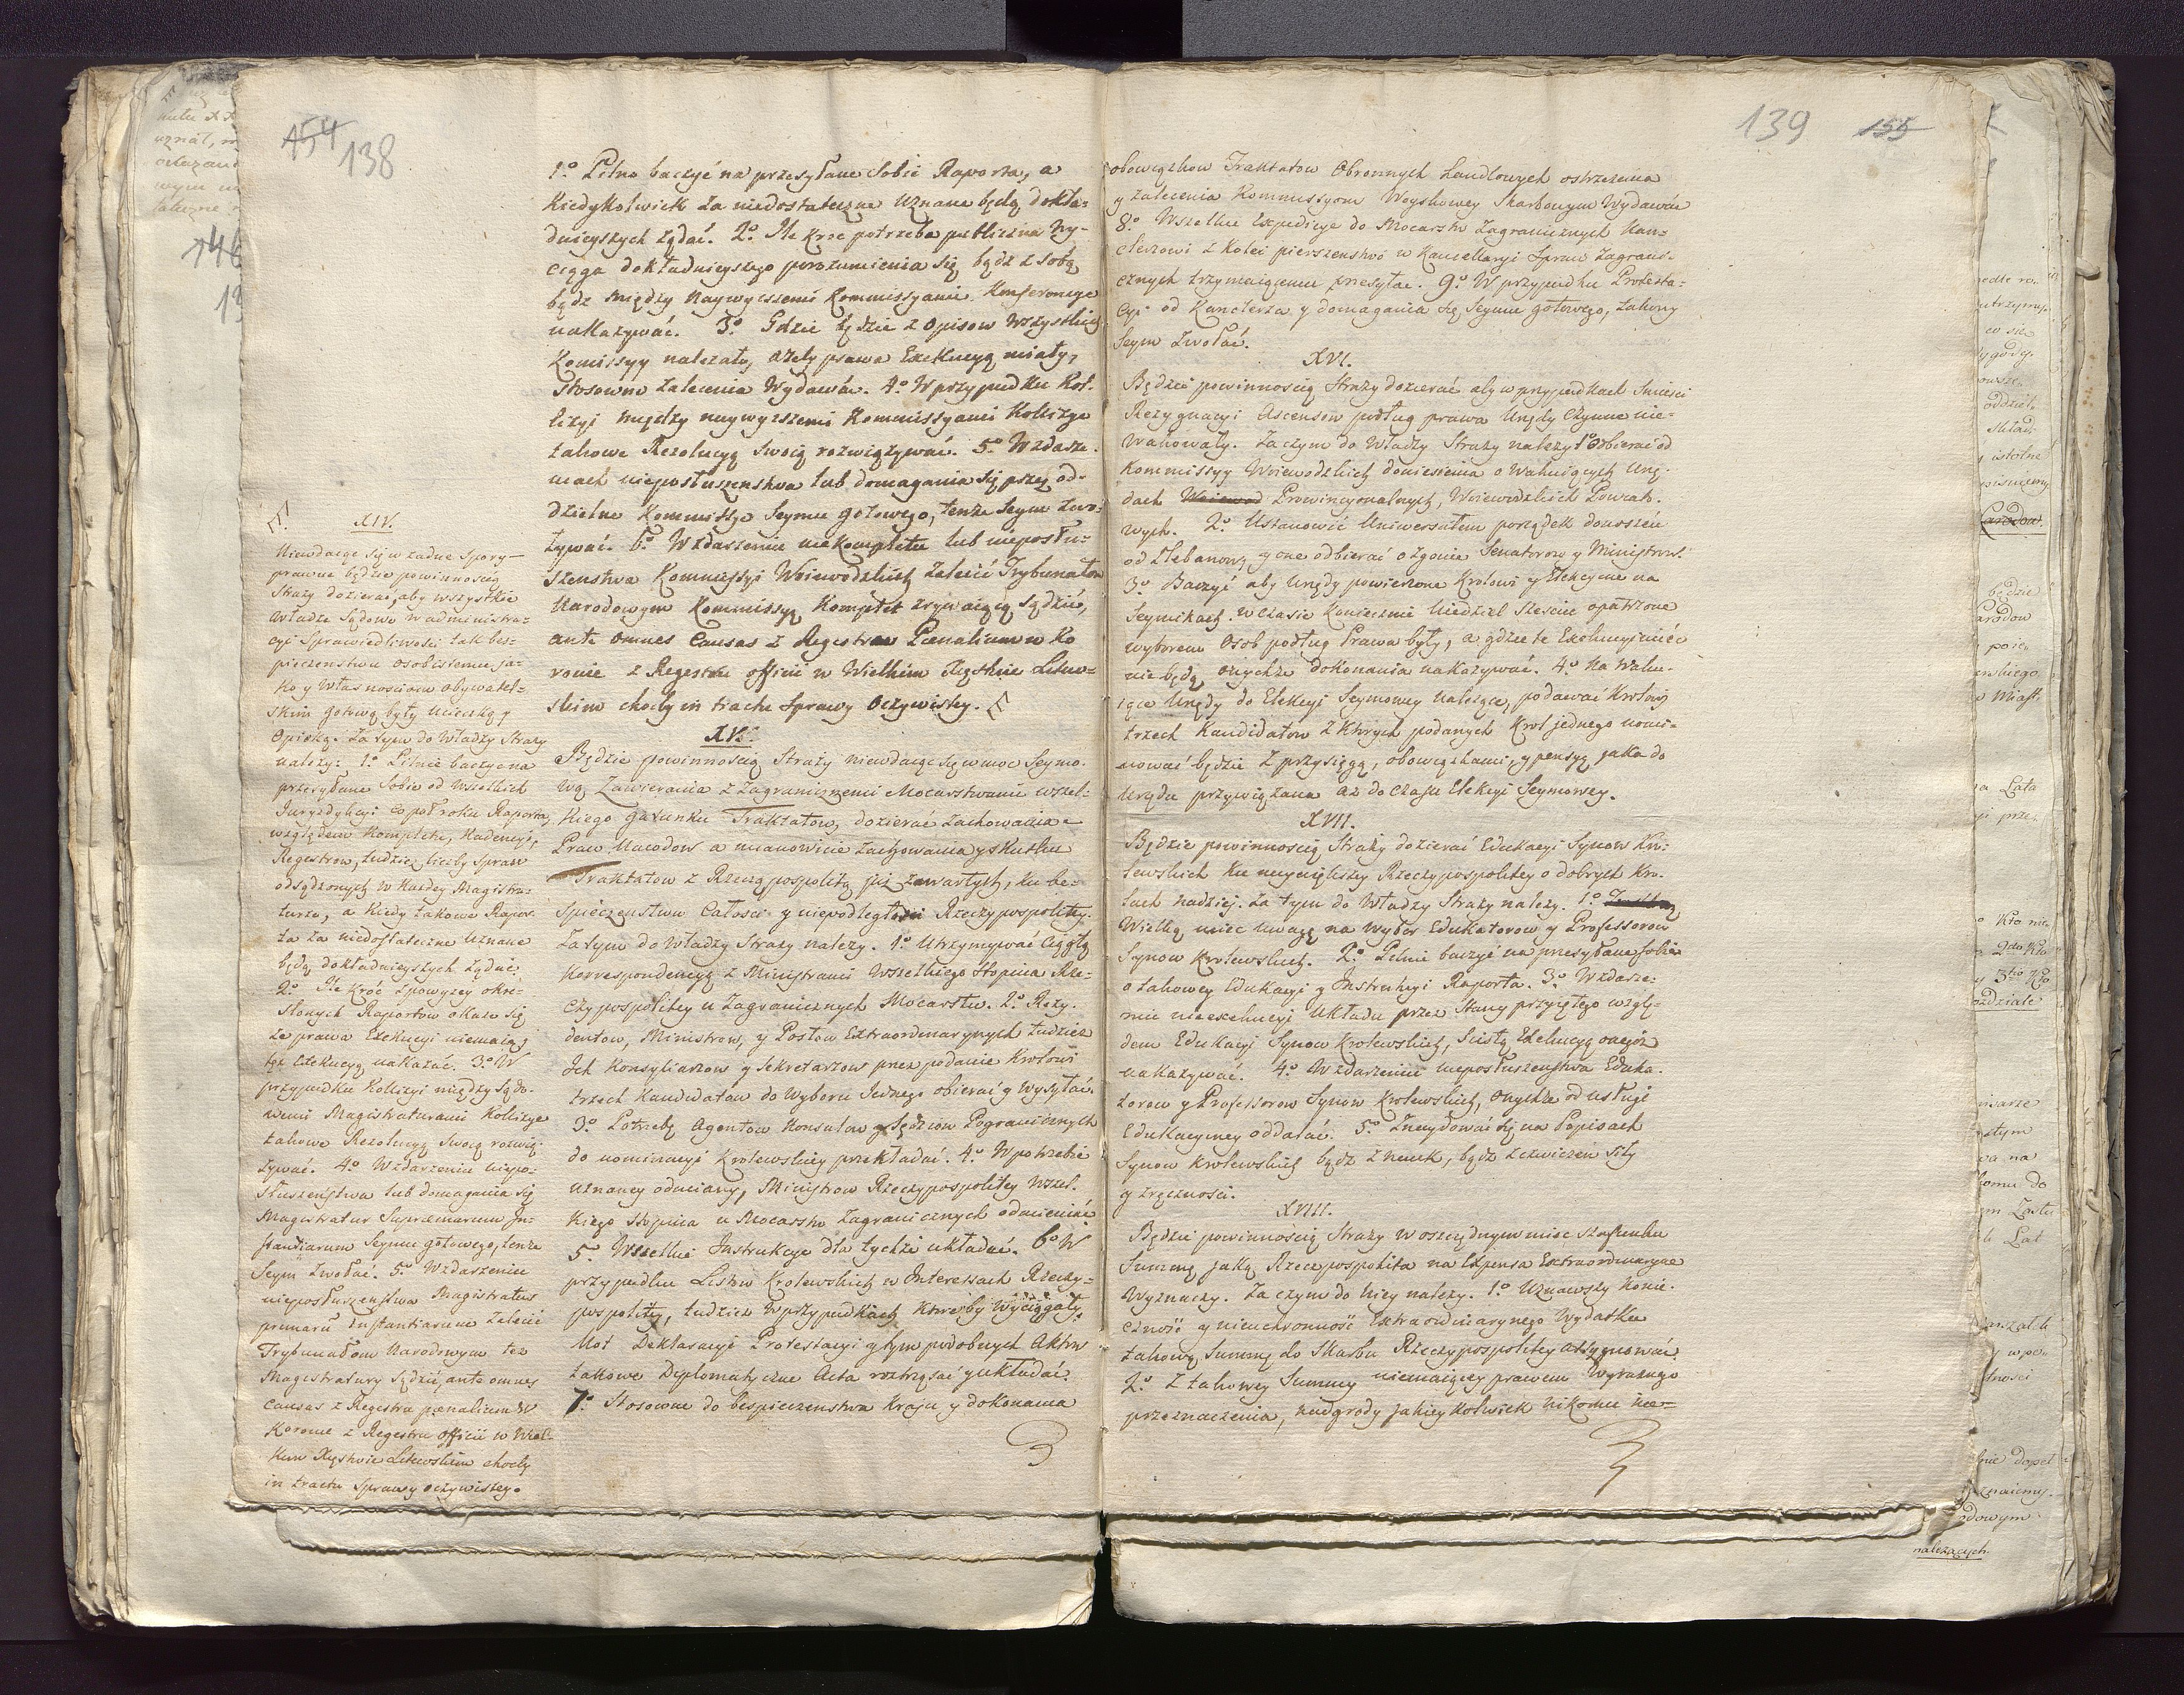 154 138
1º Pilno baczyć na przesyłane sobie Raporta, a
kiedykolwiek za niedostateczne uznane będą dokła-
dnieyszych żądać. 2º Ile kroć potrzeba publiczna wy-
ciąga dokładnieyszego porozumienia się bądź z sobą
bądź między naywyższemi Kommissyami Konferencye
nakazywać. 3º Gdzie będzie z opisow wszystkich
Komissyy należało, ażeby prawa Exekucyą miały,
stosowne zalecenia wydawać. 4º W przypadku Kol-
lizyi między naywyższemi Kommissyami Kollizye
takowe Rezolucyą swoią rozwiązywać. 5º W zdarze-
niach nieposłuszenstwa lub domagania się przez od-
dzielne Kommissye Seymu gotowego, tenże Seym zwo-
ływać. 6º W zdarzeniu niekompletu lub nieposłu-
szenstwa Kommissyi Woiewodzkich zalecić Trybunałom
Narodowym Kommissyą Komplet zrywaiącą sądzić,
ante omnes Causas z Regestru Pœnalium w Ko
ronie z Regestru officii w Wielkim Xięstwie Litew-
skim choćby in tractu sprawy oczywistey.
XIV.
Niewdaiąc się w żadne spory
prawne będzie powinnością
Straży dozierać, aby wszystkie
Władze Sądowe w administra-
cyi Sprawiedliwości tak bes-
pieczenstwu osobistemu ja-
ko y własnościom obywatel-
skim gotową były ucieczką y
opieką. Za tym do Władzy Straży
należy: 1º Pilnie baczyć na
przesyłane sobie od wszelkich
Juryzdykcyi co pół roku Raporta,
względem Kompletu, Kadencyi,
Regestrow, tudzież liczby spraw
odsądzonych w każdey Magistra-
turze, a kiedy takowe Rapor-
ta za niedostateczne uznane
będą dokładnieyszych żądać.
2º Ile kroć z powyżey okre-
slonych Raportow okaże się
że prawa Exekucyi niemaią,
tęż Exekucyą nakazać. 3º W
przypadku Kollizyi między Sądo-
wemi Magistraturami Kollizye
takowe Rezolucyą swoią rozwią-
zywać. 4º W zdarzeniu niepo-
słuszenstwa lub domagania się
Magistratur Supremarum In-
stantiarum Seymu gotowego, tenże
Seym zwołać. 5º W zdarzeniu
nieposłuszenstwa Magistratur
primarum Instantiarum zalecić
Trybunałom Narodowym też
Magistratury sądzić, ante omnes
Causas z Regestru pœnalium w
Koronie z Regestru officii w Wiel-
kim Xięstwie Litewskim choćby
in tractu sprawy oczywistego.
XV.
Będzie powinnością Straży niewdaiąc się w moc Seymo-
wą zawierania z zagranicznemi Mocarstwami wszel-
kiego gatunku Traktatow, dozierać zachowania
Praw Narodow a mianowicie zachowania y skutku
Traktatow z Rzecząpospolitą już zawartych, ku be-
spieczenstwu całości y niepodległości Rzeczypospolitey.
Za tym do Władzy Straży należy. 1º Utrzymywać ciągłą
Korrespondencyą z Ministrami wszelkiego stopnia Rze-
czypospolitey u Zagranicznych Mocarstw. 2º Rezy-
dentow, Ministrow, y Posłow Extraordynaryinych tudzież
Ich Konsyliarzow y Sekretarzow przez podanie Krolowi
trzech Kandydatow do wyboru Jednego obierać y wysyłać.
3º Potrzebę Agentow Konsulow y Sędziow Pogranicznych
do nominacyi Krolewskiey przekładać. 4º W potrzebie
uznaney odmiany, Ministrow Rzeczypospolitey wszel-
kiego stopnia u Mocarstw Zagranicznych odmieniać
5º Wszelkie Instrukcye dla tychże układać. 6º W
przypadku Listow Krolewskich w Interessach Rzeczy-
pospolitey, tudzież w przypadkach ktoreby wyciągały
Not Deklaracyi Protestacyi y tym podobnych Aktow
takowe Dyplomatyczne Acta roztrząsać y układać.
7º Stosowne do bespieczenstwa Kraju y dokonania
139 155
obowiązkow Traktatow Obronnych Handlowych ostrzeżenia
y zalecenia Kommissyom Woyskowey Skarbowym wydawać
8º Wszelkie Expedicye do Mocarstw Zagranicznych Kan-
clerzowi z kolei pierszenstwo w Kancellaryi Spraw Zagrani-
cznych trzymaiącemu przesyłać. 9º W przypadku Protesta-
cyi od Kanclerza y domagania się Seymu gotowego, takowy
Seym zwołać.
XVI.
Będzie powinnością Straży dozierać aby w przypadkach Smierci
Rezygnacyi Ascensow podług prawa Urzędy Czynne nie-
wakowały. Zaczym do Władzy Straży należy 1º odbierać od
Kommissyy Woiewodzkich doniesienia o wakuiących Urzę-
dach Prowincyonalnych, Woiewodzkich Powiato-
wych. 2º Ustanowić Uniwersałem porządek donoszeń
od Plebanow, y one odbierać o zgonie Senatorow y Ministrow
3º Baczyć aby Urzędy powierzone Krolowi y Elekcyine na
Seymikach w czasie koniecznie Niedziel sześciu opatrzone
wyborem osob podług Prawa były, a gdzie te Exekucyi mieć
nie będą onychże dokonania nakazywać. 4º Na waku-
iące Urzędy do Elekcyi Seymowey należące, podawać Krolowi
trzech Kandidatow z ktorych podanych Krol jednego nomi-
nować będzie z przysięgą, obowiązkami, y pensyą jaka do
Urzędu przywiązana aż do czasu Elekcyi Seymowey.
XVII.
Będzie powinnością Straży dozierać Edukacyi Synow Kro-
lewskich ku nayciększey Rzeczypospolitey o dobrych Kro-
lach nadziei. Za tym do Władzy Straży należy. 1º
Wielką mieć uwagę na wybor Edukatorow y Professorow
Synow Krolewskich. 2º Pilnie baczyć na przesyłane sobie
o takowey Edukacyi y Instrukcyi Raporta. 3º W zdarze-
niu nieexekucyi Układu przez Stany przyiętego wzglę-
dem Edukacyi Synow Krolewskich, scisłą Exekucyą onegoż
nakazywać. 4º W zdarzeniu nieposłuszenstwa Eduka-
torow y Professorow Synow Krolewskich, onychże od usługi
Edukacyiney oddalać. 5º Znaydować się na Popisach
Synow Krolewskich bądź z nauk, bądź z cwiczeń siły
y zręczności.
XVIII.
Będzie powinnością Straży w oszczędnym mieć szafunku
Summę jaką Rzeczpospolita na Expensa Extraordinaryine
wyznaczy. Za czym do niey należy. 1º Uznawszy konie-
czność y nieuchronność Extraordinaryinego Wydatku
takową Summę do Skarbu Rzeczypospolitey assygnować.
2º Z takowey Summy niemaiącey prawem wyraźnego
przeznaczenia, nadgrody jakieykolwiek nikomu nie-
Miast.
Lata
2do
3tio
oździale
należących.